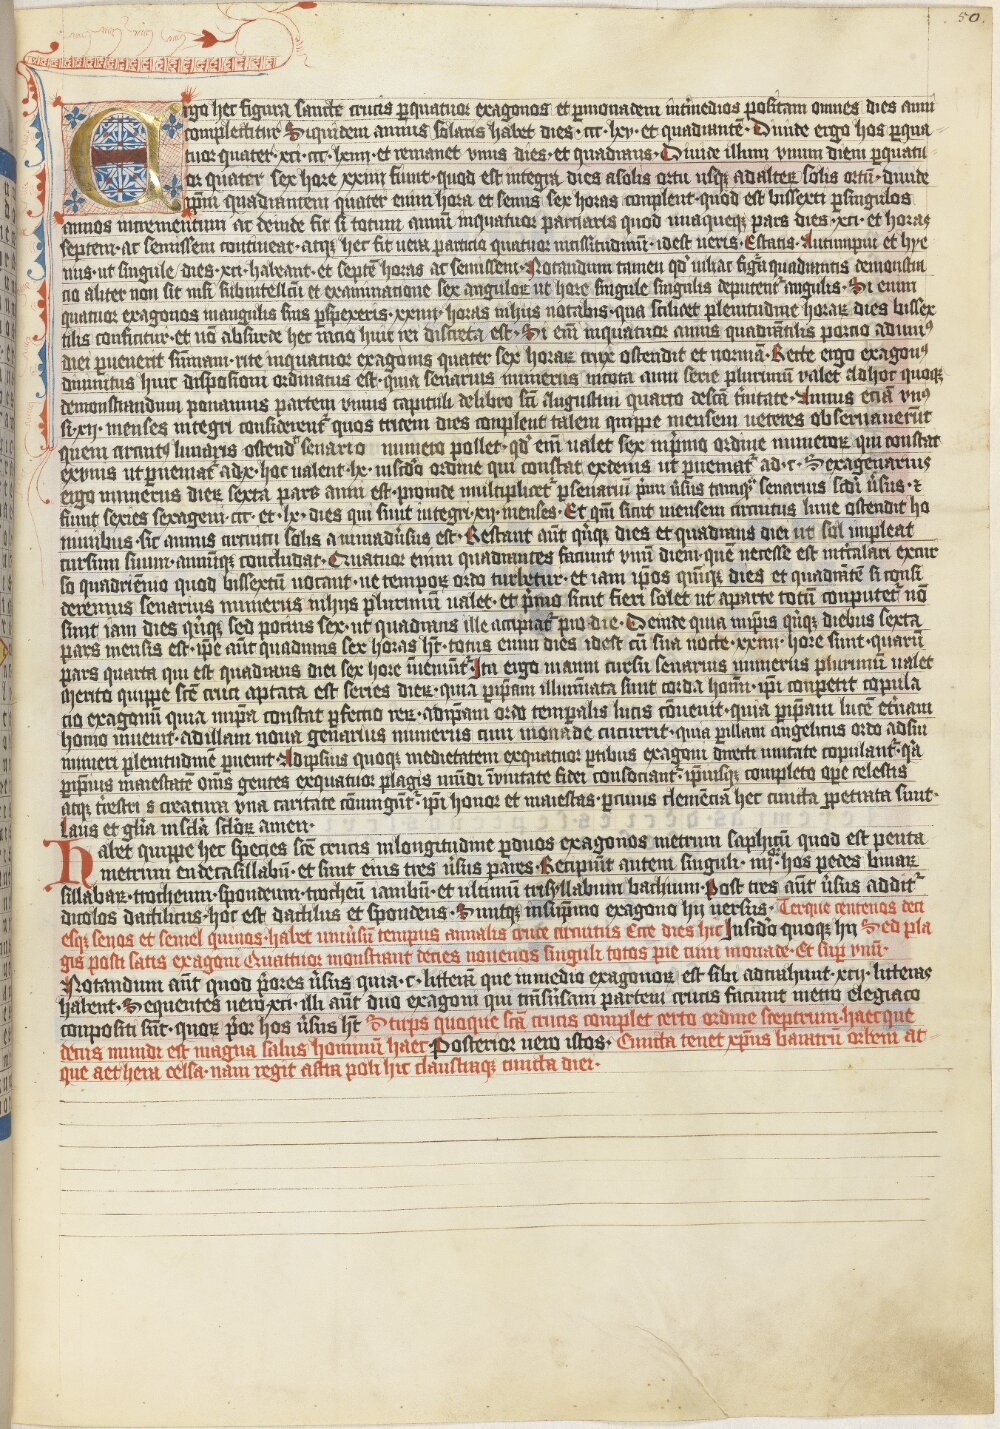 50.
Ergo hec figura sancte crucis ꝑquatuor exagonos et ꝑmonadem intͥmedios positam omnes dies anni
complectitur Siquidem annus solaris habet dies· ccc· lxv· et quadiantē· Diuide ergo hos ꝑqua
tuor quater· xci· ccc· lxiiii· et remanet vnus dies· et quadians· Diuide illum vnum diem ꝑquatu
or quater sex hore xxiiii fiunt· quod est integra dies asolis ortu usqꝫ adalteꝝ solis ortū· diuide
ip̄m quadiantem quater enim hora et semis sex horas conplent· quod est bissexti ꝑsingulos
annos incrementum ac deinde fit si totum annū inquatuor parciaris quod unaqueqꝫ pars dies· xci· et horas
septem· ac semissem contineat· atqꝫ hec fit uera particio quatuor uicissitudinū· idest ueris· Estatis· Autumpni et hye
mis· ut singule dies· xci· habeant· et septē horas ac semissem· Notandum tamen qd̓ inhac fig̓a quadiantis demonstra
cio aliter non fit nisi subintellc̄u et examinatione sex anguloꝝ ut hore singule singulis deputent̓ angulis· Si enim
quatuor exagonos inangulis suis ꝑspexeris· xxiiii· horas inhiis notabis· qua scilicet plenitudine horaꝝ dies bissex
tilis conficitur· et nō absurde hec racio huic rei discreta est· Si em̄ inquatuor annis quadiātilis porcio adunꝰ
diei ꝑuenerit sūmam· rite inquatuor exagonis quater sex horaꝝ crux ostendit et normā· Recte ergo exagonꝰ
diuinitus huic dispositioni ordinatus est· quia senarius numerus intota anni serie plurimū valet adhoc quoqꝫ
demonstrandum ponamus partem vnius capituli delibro sc̄i Augustini quarto desc̄a tͥnitate· Annus eciā vnꝰ
si· xij· menses integri considerent̓ quos triceni dies conplent talem quippe mensem ueteres obseruauerūt
quem circuitꝰ lunaris ostend̓ senario numero pollet· qd̓ em̄ ualet sex inp̓mo ordine numeroꝝ qui constat
exvnis ut ꝑueniat̓ adx· hoc ualent· lx· insc̄do ordine qui constat exdenis ut ꝑueniat̓ ad· c· Sexagenarius
ergo numerus dieꝝ sexta pars anni est· proinde multiplicet̓ ꝑsenariū p̓mi ūsus tamqͣ senarius sc̄di ūsus· ⁊
fiunt sexies sexageni· ccc· et· lx· dies qui sunt integri· xij· menses· Et qm̄ sicut mensem circuitus lune ostendit ho
minibus· sic annus circuitu solis animadūsus est· Restant aūt qͥnqꝫ dies et quadians diei ut sol impleat
cursum suum· annūqꝫ concludat· Quatuor enim quadiantes faciunt vnū diem· quē necesse est intͥcalari excur
so quadriēnio quod bissextū uocant· ne tempoꝝ ordo turbetur· et iam ip̄os quīqꝫ dies et quadiātē si consi
deremus senarius numerus inhijs plurimū ualet· et p̓mo sicut fieri solet ut aparte totū conputet̓ nō
sunt iam dies qͥnqꝫ sed potius sex· ut quadians ille accipiat̓ pro die· Deinde quia inip̄is qͥnqꝫ diebus sexta
pars mensis est· ip̄e aūt quadians sex horas hēt· totus enim dies idest cū sua nocte· xxiiii· hore sunt· quarū
pars quarta qui est quadians diei sex hore inueniunt̓ Ita ergo inanni cursu senarius numerus plurimū ualet
Merito quippe sc̄e cruci aptata est series dieꝝ· quia ꝑip̄am illuminata sunt corda hom̄· ip̄i conpetit copula
cio exagonū quia inip̄a constat ꝑfectio reꝝ· adip̄am ordo temporalis lucis cōuenit· quia ꝑip̄am lucē et̓nam
homo inuenit· adillam noua genarius numerus cum monade cucurrit· quia ꝑillam angelicus ordo adsui
numeri plenitudinē ꝑuenit· Adipsius quoqꝫ medietatem exquatuor ꝑtibus exagoni directi unitate copulant̓· qͥa
ꝑip̄ius maiestatē om̄s gentes exquatuor plagis mūdi īvnitate fidei consociant̓· ip̄iusqꝫ completo oꝑe celestis
atqꝫ t̓restri s creatura vna caritate cōiungūt̓· ip̄i honor et maiestas· ꝑcuius clemēciā hec cuncta ꝑpetrata sunt·
laus et gl̓ia insc̄la sc̄loꝝ amen·
Habet quippe hec species sc̄e crucis inlongitudine ꝑduos exagonos metrum saphicū quod est penta
metrum endecasillabū· et sunt eius tres ūsus pares· Recipiūt autem singuli· iiij· hos pedes binaꝝ
sillabaꝝ· trocheum· spondeum· trocheū iambū· et ultimū trisyllabum bachium· Post tres aūt ūsus addit̓
dicolos dactilicus· hoc est dactilus et spondeus· Suntqꝫ insup̓imo exagono hij uersus· Terque centenos deci
esqꝫ senos et semel quinos· habet uniūsū tempus annalis cruce circuitus Ecce dies hic Insc̄do quoqꝫ hij Sed pla
gis posti satis exagoni Quattuor monstrant decies nouenos singuli totos pie cum monade· Et suꝑ vnū·
Notandum aūt quod p̓ores ūsus quia· c· litterā que inmedio exagonoꝝ est sibi adtrahunt· xcij· litteras
habent· Sequentes uero xci· illi aūt duo exagoni qui tͣnsūsam partem crucis faciunt metro elegiaco
conpositi sūt· quoꝝ p̓or hos ūsus hēt Stirps quoque sc̄a crucis complet certo ordine sceptrum· haecque
decus mundi est magna salus hominū haec Posterior uero istos· Cuncta tenet xp̄us baratrū orbem at
que aethera celsa· nam regit astra poli hic claustraqꝫ cuncta diei·